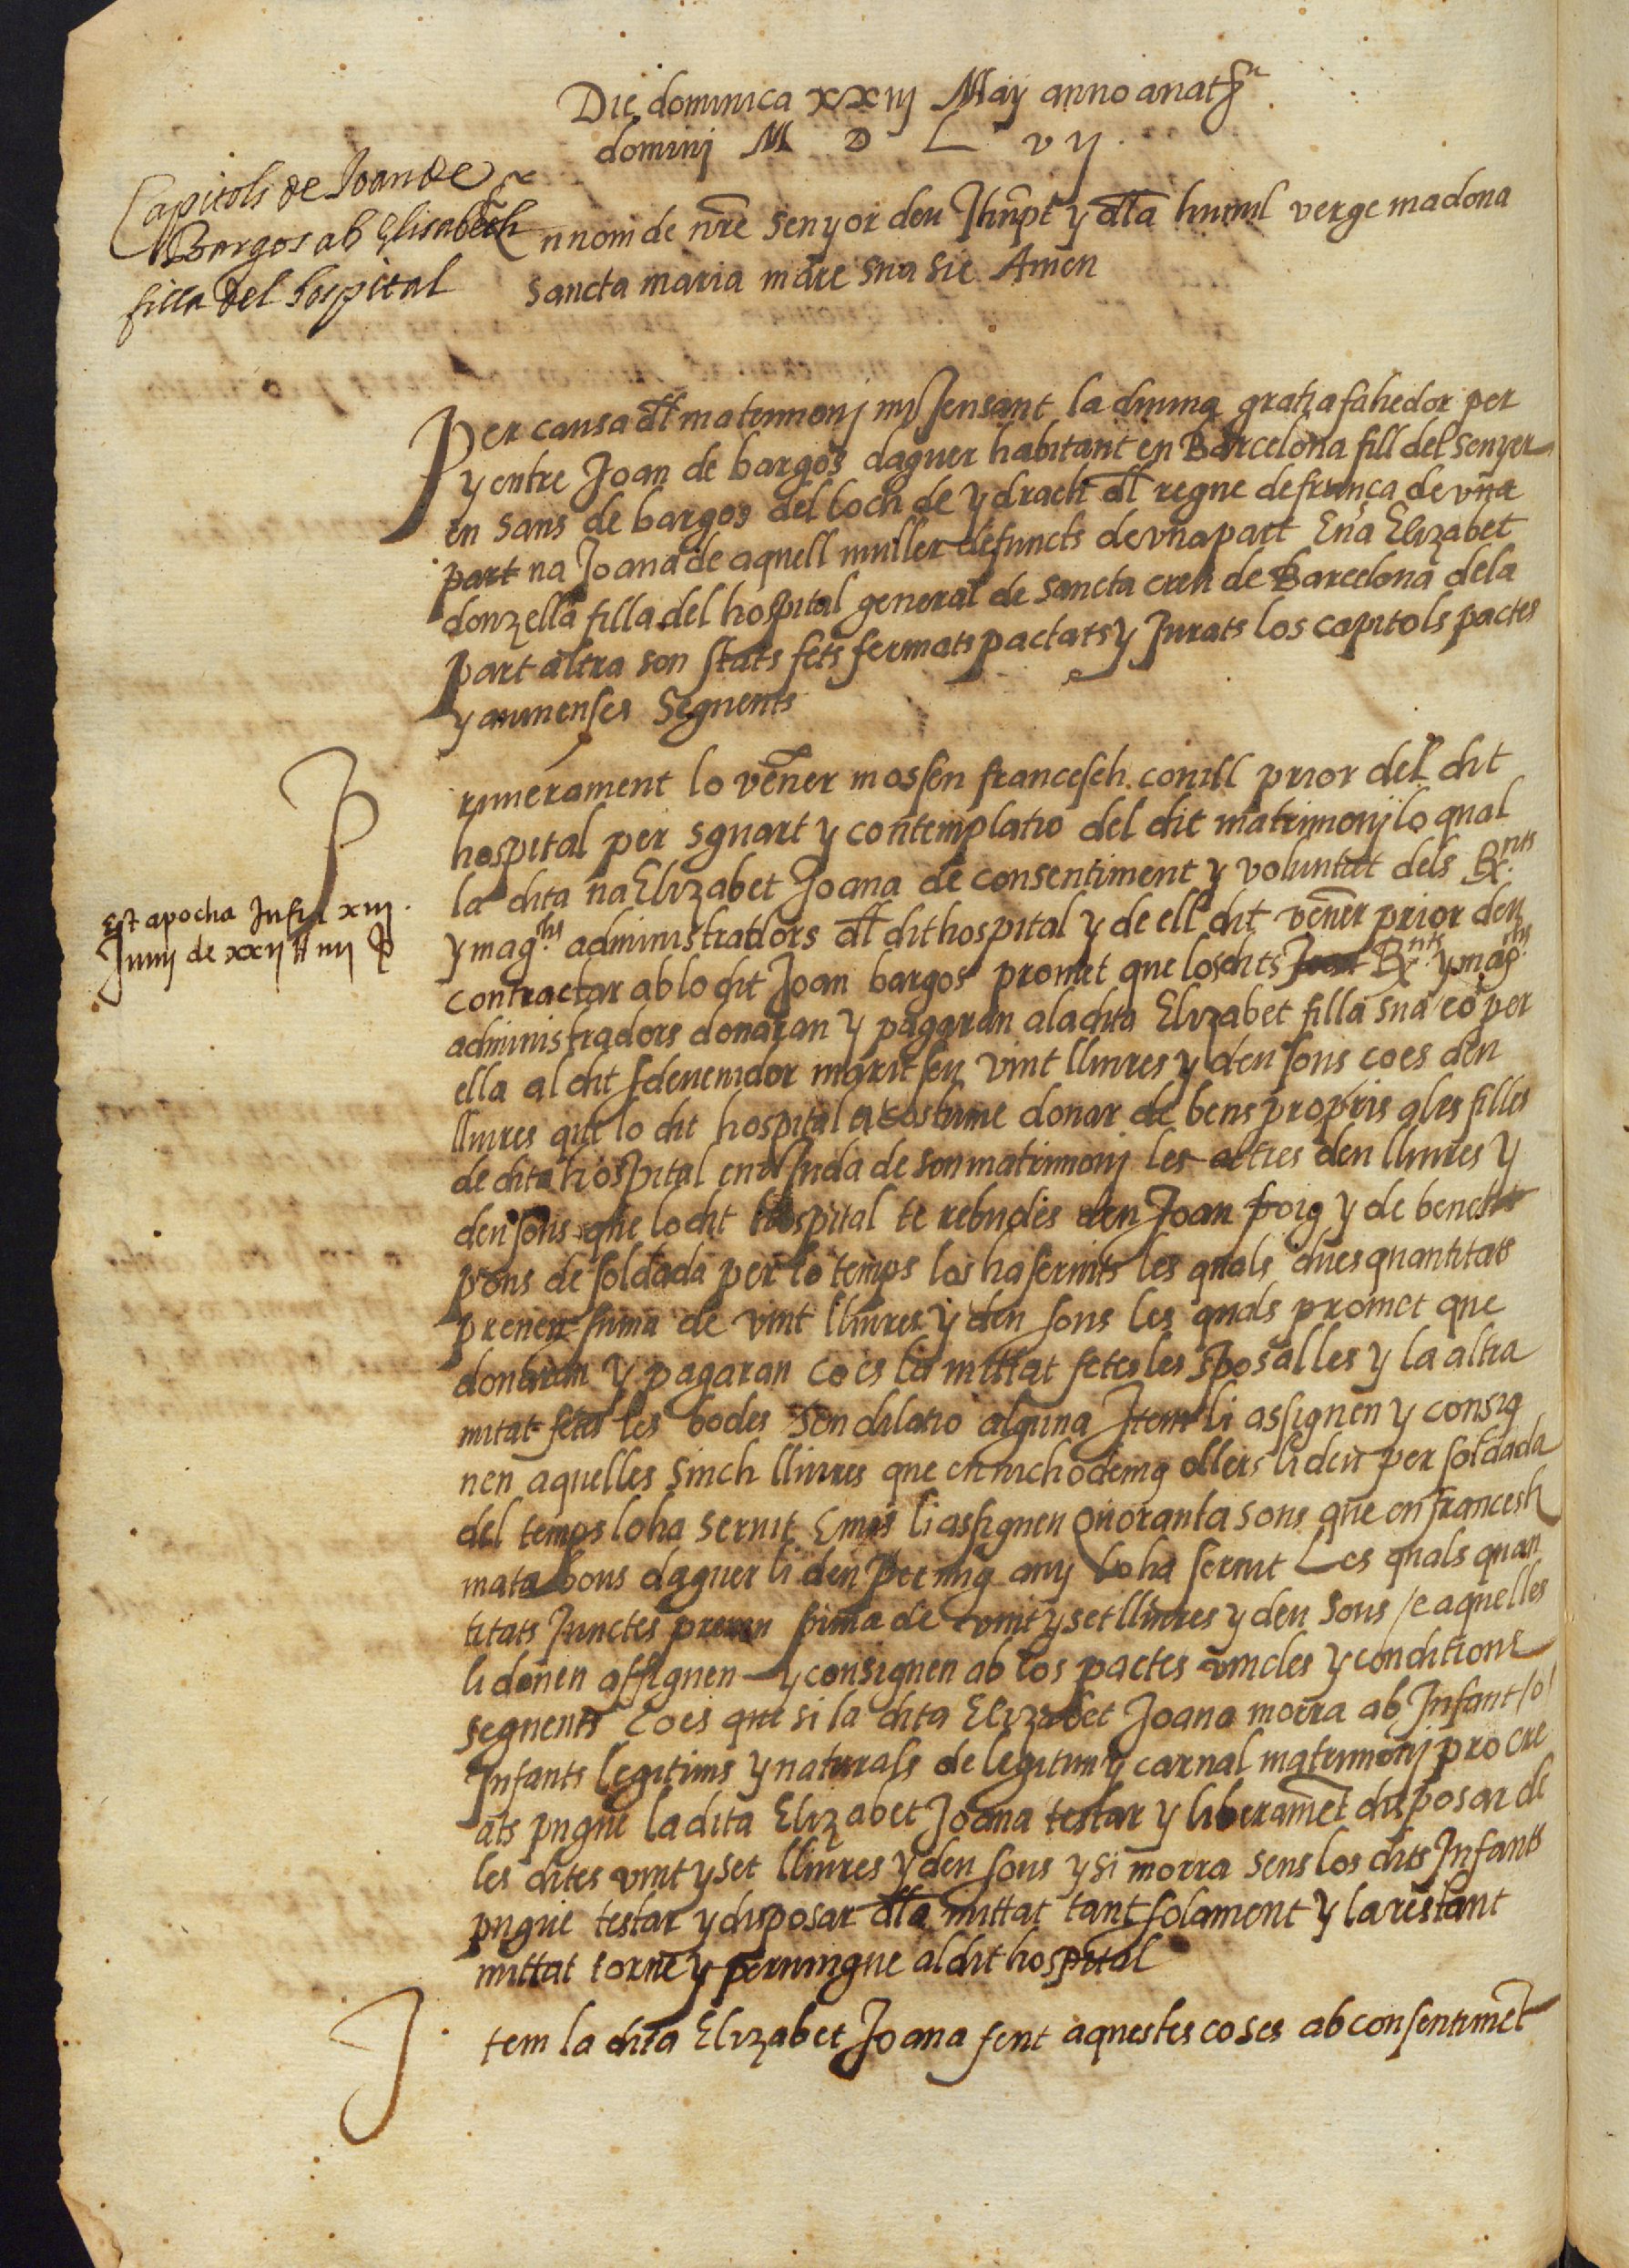 Die dominica xxiij Maij anno a nat.e
dominj M D L vij.
Capitols de Joan de
Bargos ab Elisabeth
filla del hospital
En nom de nr̃e senyor deu Jhũ xp̃t y dl̃a humil verge madona
sancta maria mare sua sie Amen
Per causa dl̃ matrimonj mijsensant la diuina gratia fahedor per
y entre Joan de bargos daguer habitant en Barcelona fill del senyer
en sans de bargos del loch de ydrach dl̃ regne de frança de vna
part na Joana de aquell muller defuncts de vna part E na Elizabet
donzella filla del hospital general de sancta creu de Barcelona de la
part altra son stats fets fermats pactats y jurats los capitols pactes
y auinenses seguents
Primerament lo vẽner mossen francesch conill prior del dit
hospital per sguart y contemplatio del dit matrimonij lo qual
la dita na Elizabet Joana de consentiment y voluntat dels Rx.nts
y mag.chs administradors dl̃ dit hospital y de ell dit vẽner prior deu
Est apocha infra xiij.
Junij de xxij ll iiij ß
contractar ab lo dit Joan bargos promet que los dits Joan Rx.nts y mag.chs
administradors donaran y pagaran a la dita Elizabet filla sua eo per
ella al dit sdeuenidor marit seu vint lliures y deu sous ço es deu
lliures que lo dit hospital acostume donar de bens propris a les filles
de dit hospital en aiuda de son matrimonj les altres deu lliures y
deu sous que lo dit hospital te rebudes den Joan poig y de benet
pons de soldada per lo temps los ha seruits les quals dues quantitats
prenen suma de vint lliures y deu sous les quals promet que
donaran y pagaran ço es la mittat fetes les sposalles y la altra
mitat fetes les bodes sen dilatio alguna Item li assignen y consig
nen aquelles sinch lliures que en michodemg ollers li deu per soldada
del temps lo ha seruit E mes li assignen Quoranta sous que en francesh
matabous daguer li deu per mig any lo ha seruit Les quals quan
titats junctes prenen suma de vint y set lliures y deu sous /e aquelles
li donen assignen y consignen ab los pactes vincles y conditions
seguents ço es que si la dita Elizabet Joana morra ab infant /o/
infants legitims y naturals de legitim y carnal matrimonij procre
ats pugue la dita Elizabet Joana testar y liberamẽt disposar de
les dites vint y set lliures y deu sous y si morra sens los dits infants
pugue testar y disposar dl̃a mittat tant solament y la restant
mittat torne y peruingue al dit hospital
Item la dita Elizabet Joana fent aquestes coses ab consentimẽt